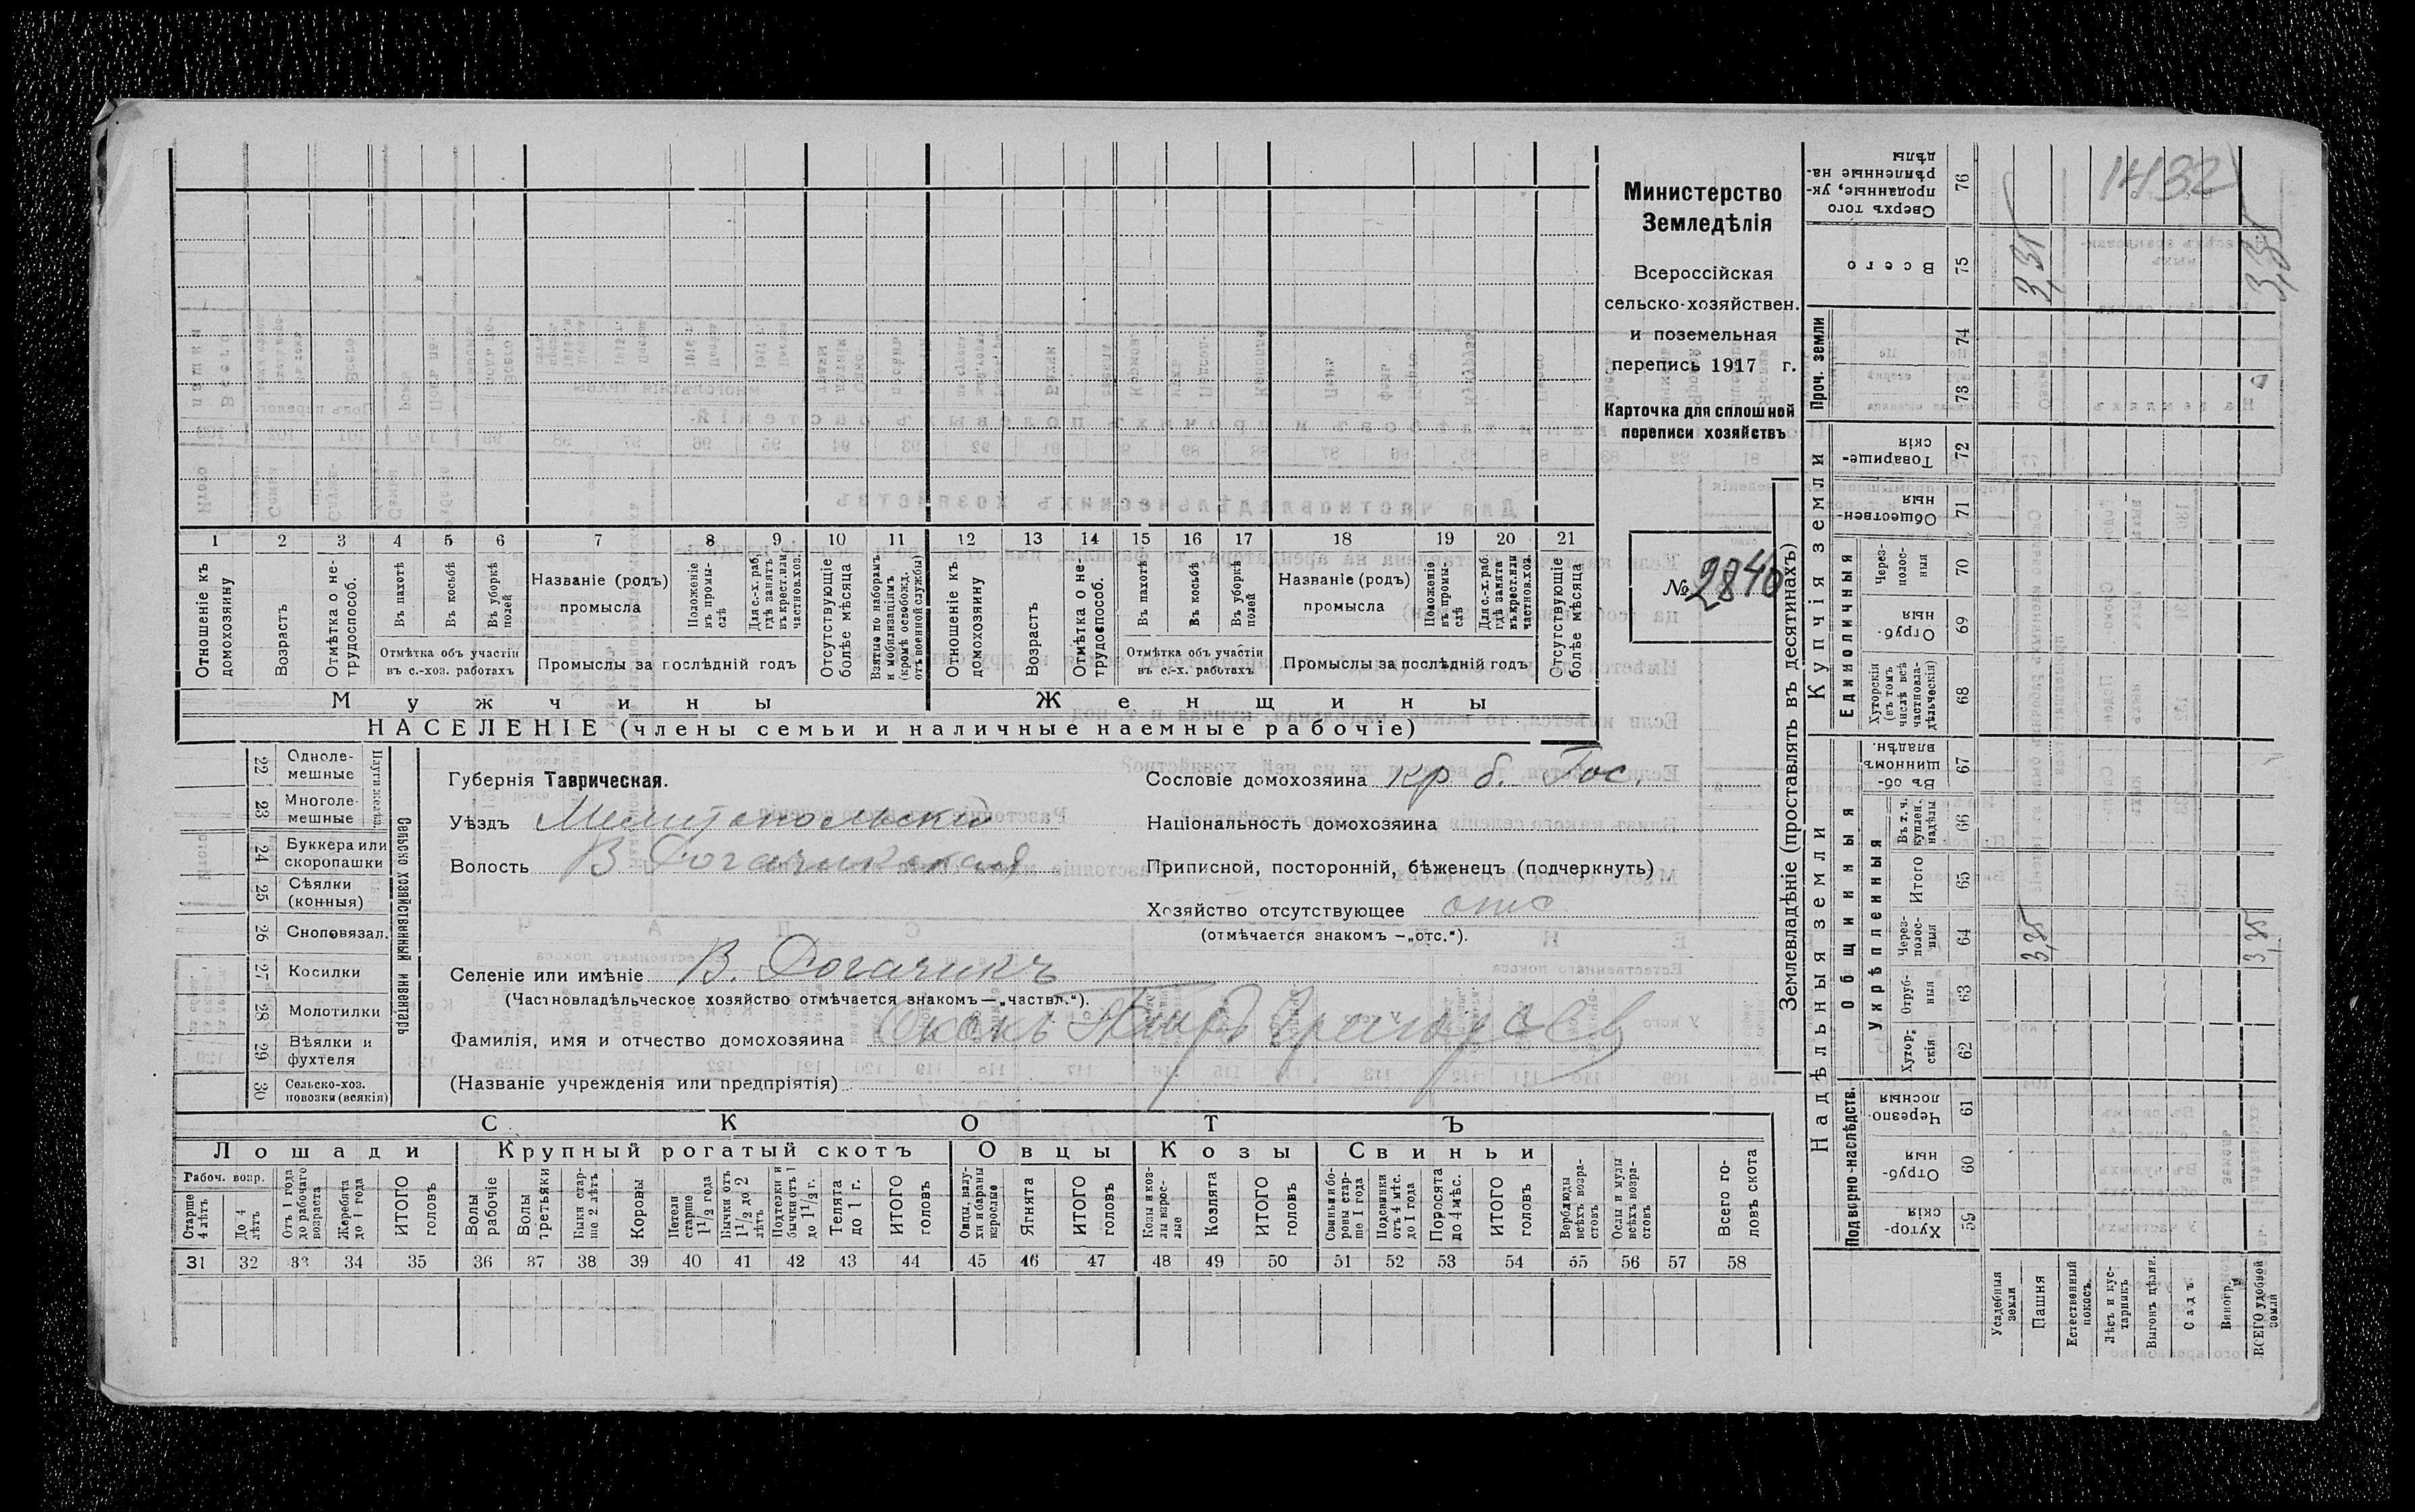 Министерство
Земледѣлія
Всероссійская
сельско-хозяйствен.
и поземельная
перепись 1917 г.
Карточка для сплошной
переписи хозяйствъ
№ 2846
1432
1 2 3 4 5 6 7 8 9 10 11 12 13 14 15 16 17 18 19 20 21
Отношеніе къ домохозяину
Возрастъ
Отмѣтка о нетрудоспособ.
Въ пахотѣ
Въ косьбѣ
Въ уборкѣ полей
Отмѣтка объ участіи
въ с.-хоз. работахъ
Названіе (родъ)
промысла
Положеніе въ промыслѣ
Для с.-х. раб. гдѣ занятъ въ крест. или частнов. хоз.
Промыслы за послѣдній годъ
Отсутствующіе болѣе мѣсяца
Взятые по наборамъ и мобилизаціямъ (кромѣ освобожд. отъ военной службы)
Отношеніе къ домохозяину
Возрастъ
Отмѣтка о нетрудоспособ.
Въ пахотѣ
Въ косьбѣ
Въ уборкѣ полей
Отмѣтка объ участіи
въ с.-х. работахъ
Названіе (родъ)
промысла
Положеніе въ промыслѣ
Для с.-х. раб. гдѣ занята въ крест. или частнов. хоз.
Промыслы за послѣдній годъ
Отсутствующіе болѣе мѣсяца
Мужчины
Женщины
НАСЕЛЕНІЕ (члены семьи и наличные наемные рабочіе)
Сельско хозяйственный инвентарь
Плуги желѣз.
22 Однолемешные
23 Многолемешные
24 Буккера или скоропашки
25 Сѣялки (конныя)
26 Сноповязал.
27 Косилки
28 Молотилки
29 Вѣялки и фухтеля
30 Сельско-хоз. повозки (всякія)
Губернія Таврическая.
Уѣздъ Мелитопольскій
Волость В Рогачикская
Селеніе или имѣніе В. Рогачикъ
(Частновладѣльческое хозяйство отмѣчается знакомъ—„частвл.“).
Фамилія, имя и отчество домохозяина
(Названіе учрежденія или предпріятія)
Сословіе домохозяина кр б. Гос.
Національность домохозяина
Приписной, посторонній, бѣженецъ (подчеркнуть)
Хозяйство отсутствующее отс
(отмѣчается знакомъ —„отс.“).
СКОТЪ
Лошади
Крупный рогатый скотъ
Овцы
Козы
Свиньи
Рабоч. возр.
Старше 4 лѣтъ
До 4 лѣтъ
Отъ 1 года до рабочаго возраста
Жеребята до 1 года
ИТОГО головъ
Волы рабочіе
Волы третьяки
Быки старше 2 лѣтъ
Коровы
Нетели старше 1 1/2 года
Бычки отъ 1 1/2 до 2 лѣтъ
Подтелки и бычки отъ 1 до 1 1/2 г.
Телята до 1 г.
ИТОГО головъ
Овцы, валухи и бараны взрослые
Ягнята
ИТОГО головъ
Козы и козлы взрослые
Козлята
ИТОГО головъ
Свиньи и боровы старше 1 года
Подсвинки отъ 4 мѣс. до 1 года
Поросята до 4 мѣс.
ИТОГО головъ
Верблюды всѣхъ возрастовъ
Ослы и мулы всѣхъ возрастовъ
Всего головъ скота
31 32 33 34 35 36 37 38 39 40 41 42 43 44 45 46 47 48 49 50 51 52 53 54 55 56 57 58
Землевладѣніе (проставлять въ десятинахъ)
Надѣльныя земли
Купчія земли
Проч. земли
Подворно-наслѣдств.
Общинныя
Укрѣпленныя
Единоличныя
59 Хуторскія
60 Отрубныя
61 Черезполосныя
62 Хуторскія
63 Отрубныя
64 Черезполосныя
65 Итого
66 Въ т. ч. куплен. надѣлы
67 Въ общинномъ владѣн.
68 Хуторскія (въ томъ числѣ всѣ частновладѣльческія)
69 Отрубныя
70 Черезполосныя
71 Общественныя
72 Товарищескія
73
74
75 Всего
76 Сверхъ того проданные, укрѣпленные надѣлы
Усадебныя земли
Пашня
Естественный покосъ
Лѣсъ и кустарникъ
Выгонъ цѣлин.
Садъ
Виногр.
ВСЕГО удобной земли